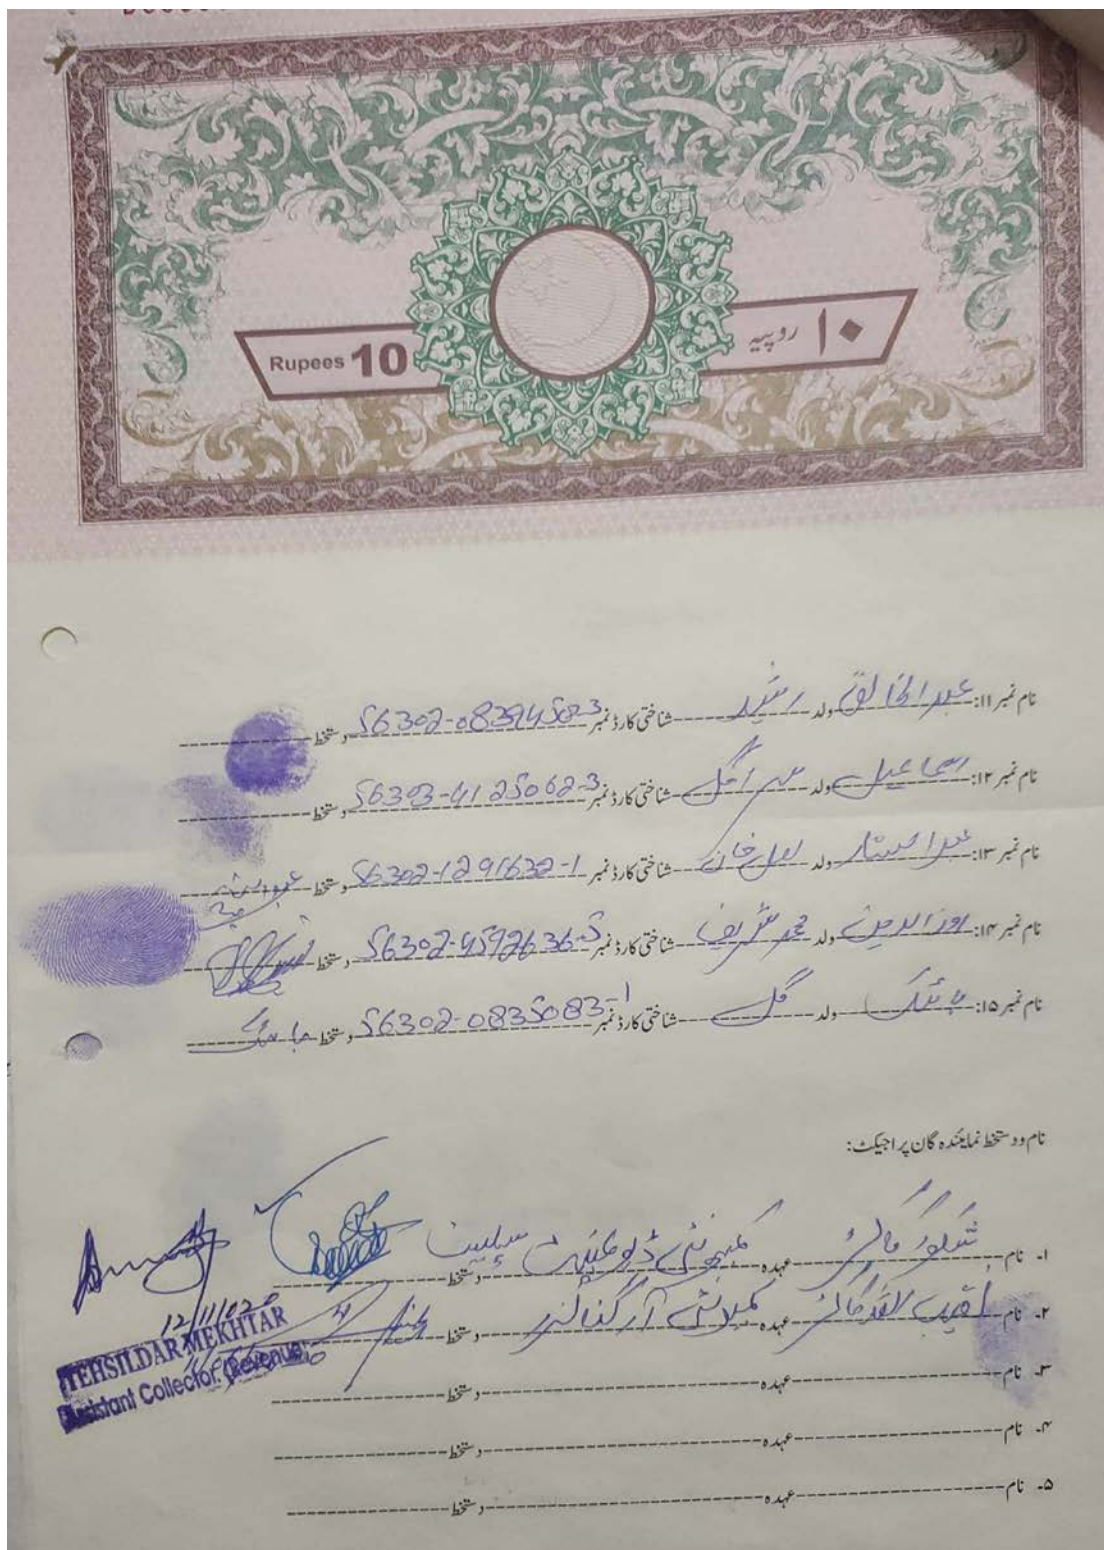 Rupees 10
۱۰ روپیہ
نام نمبر ۱۱: عبدالخالق ولد رشید شناختی کارڈ نمبر 56302-0839458-3 دستخط
نام نمبر ۱۲: اسماعیل ولد میرا گل شناختی کارڈ نمبر 56303-4125062-3 دستخط
نام نمبر ۱۳: عبدالستار ولد لعل خان شناختی کارڈ نمبر 56302-1291632-1 دستخط
نام نمبر ۱۴: روزالدین ولد محمد شریف شناختی کارڈ نمبر 56302-4592636-5 دستخط
نام نمبر ۱۵: ولد گل شناختی کارڈ نمبر 56302-0835083-1 دستخط
نام و دستخط نمائندہ گان پراجیکٹ:
۱۔ نام عہدہ کمیونٹی دستخط
۲۔ نام عہدہ آرگنائزر دستخط
۳۔ نام عہدہ دستخط
۴۔ نام عہدہ دستخط
۵۔ نام عہدہ دستخط
TEHSILDAR MEKHTAR
Assistant Collector (Revenue)